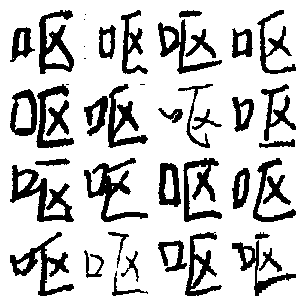 呕呕呕呕
呕呕呕呕
呕呕呕呕
呕呕呕呕